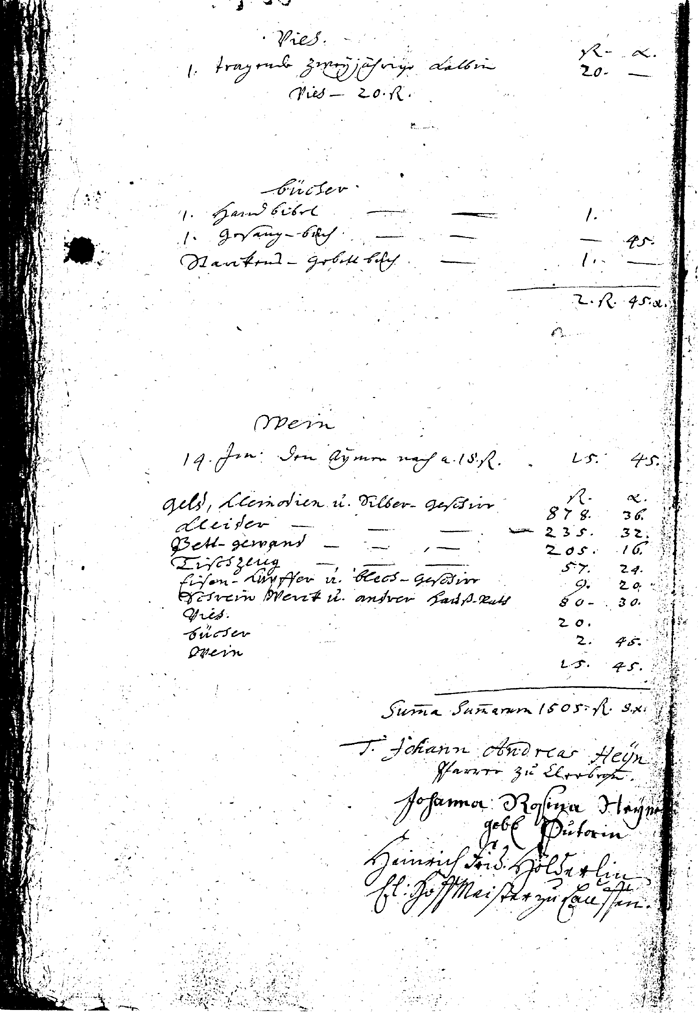 Vieh.
R. x.
1. tragende zweyjährige Kalbin 20. —
Vieh — 20. R.
Bücher
1. Handbibel — — 1.
1. Gesang-buch — — — 45.
Starkens-Gebettbuch — 1. —
2. R. 45. x.
Wein
14. Jmi den Aymer nach a. 18. R. 15. 45.
R. x.
Geld, Kleinodien u. Silber-Geschirr 878. 36.
Kleider — — — 235. 32.
Bett-gewand — — — 205. 16.
Tischzeug — — 57. 24.
Eisen-Kupffer u. blech-Geschirr 9. 20.
Schrein Werck u. andrer Hauß-Rath 80. 30.
Vieh. 20.
Bücher 2. 45.
Wein 15. 45.
Summa Summarum 1505. R. 8. x.
T. Johann Andreas Heyn
Pfarrer zu Cleebronn.
Johanna Rosina Heynin
geb. Sutorin
Heinrich Frid. Hölderlin
Cl: Hoffmeister zu Lauffen.